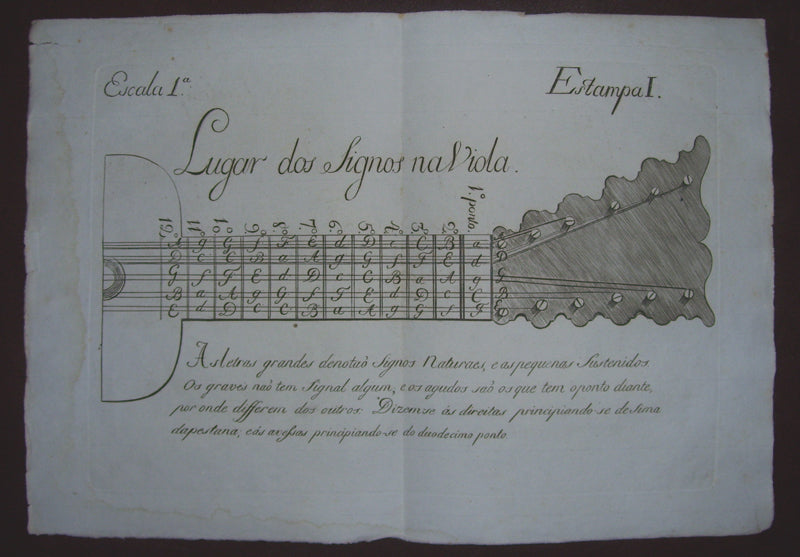 Escala 1.ª
Estampa I.
Lugar dos Signos na Viola.
12.º 11.º 10.º 9.º 8.º 7.º 6.º 5.º 4.º 3.º 2.º 1.º ponto.
A g G f F E d D c C B a A
D c C B a A g G f F E d D
G f F E d D c C B a A g G
B a A g G f F E d D c C B
E d D c C B a A g G f F E
As letras grandes denotaõ Signos Naturaes, e as pequenas Sustenidos.
Os graves naõ tem Signal algum, e os agudos saõ os que tem o ponto diante,
por onde differem dos outros. Dizemse ás direitas principiando-se de sima
da pestana, e ás avessas principiando-se do duodecimo ponto.